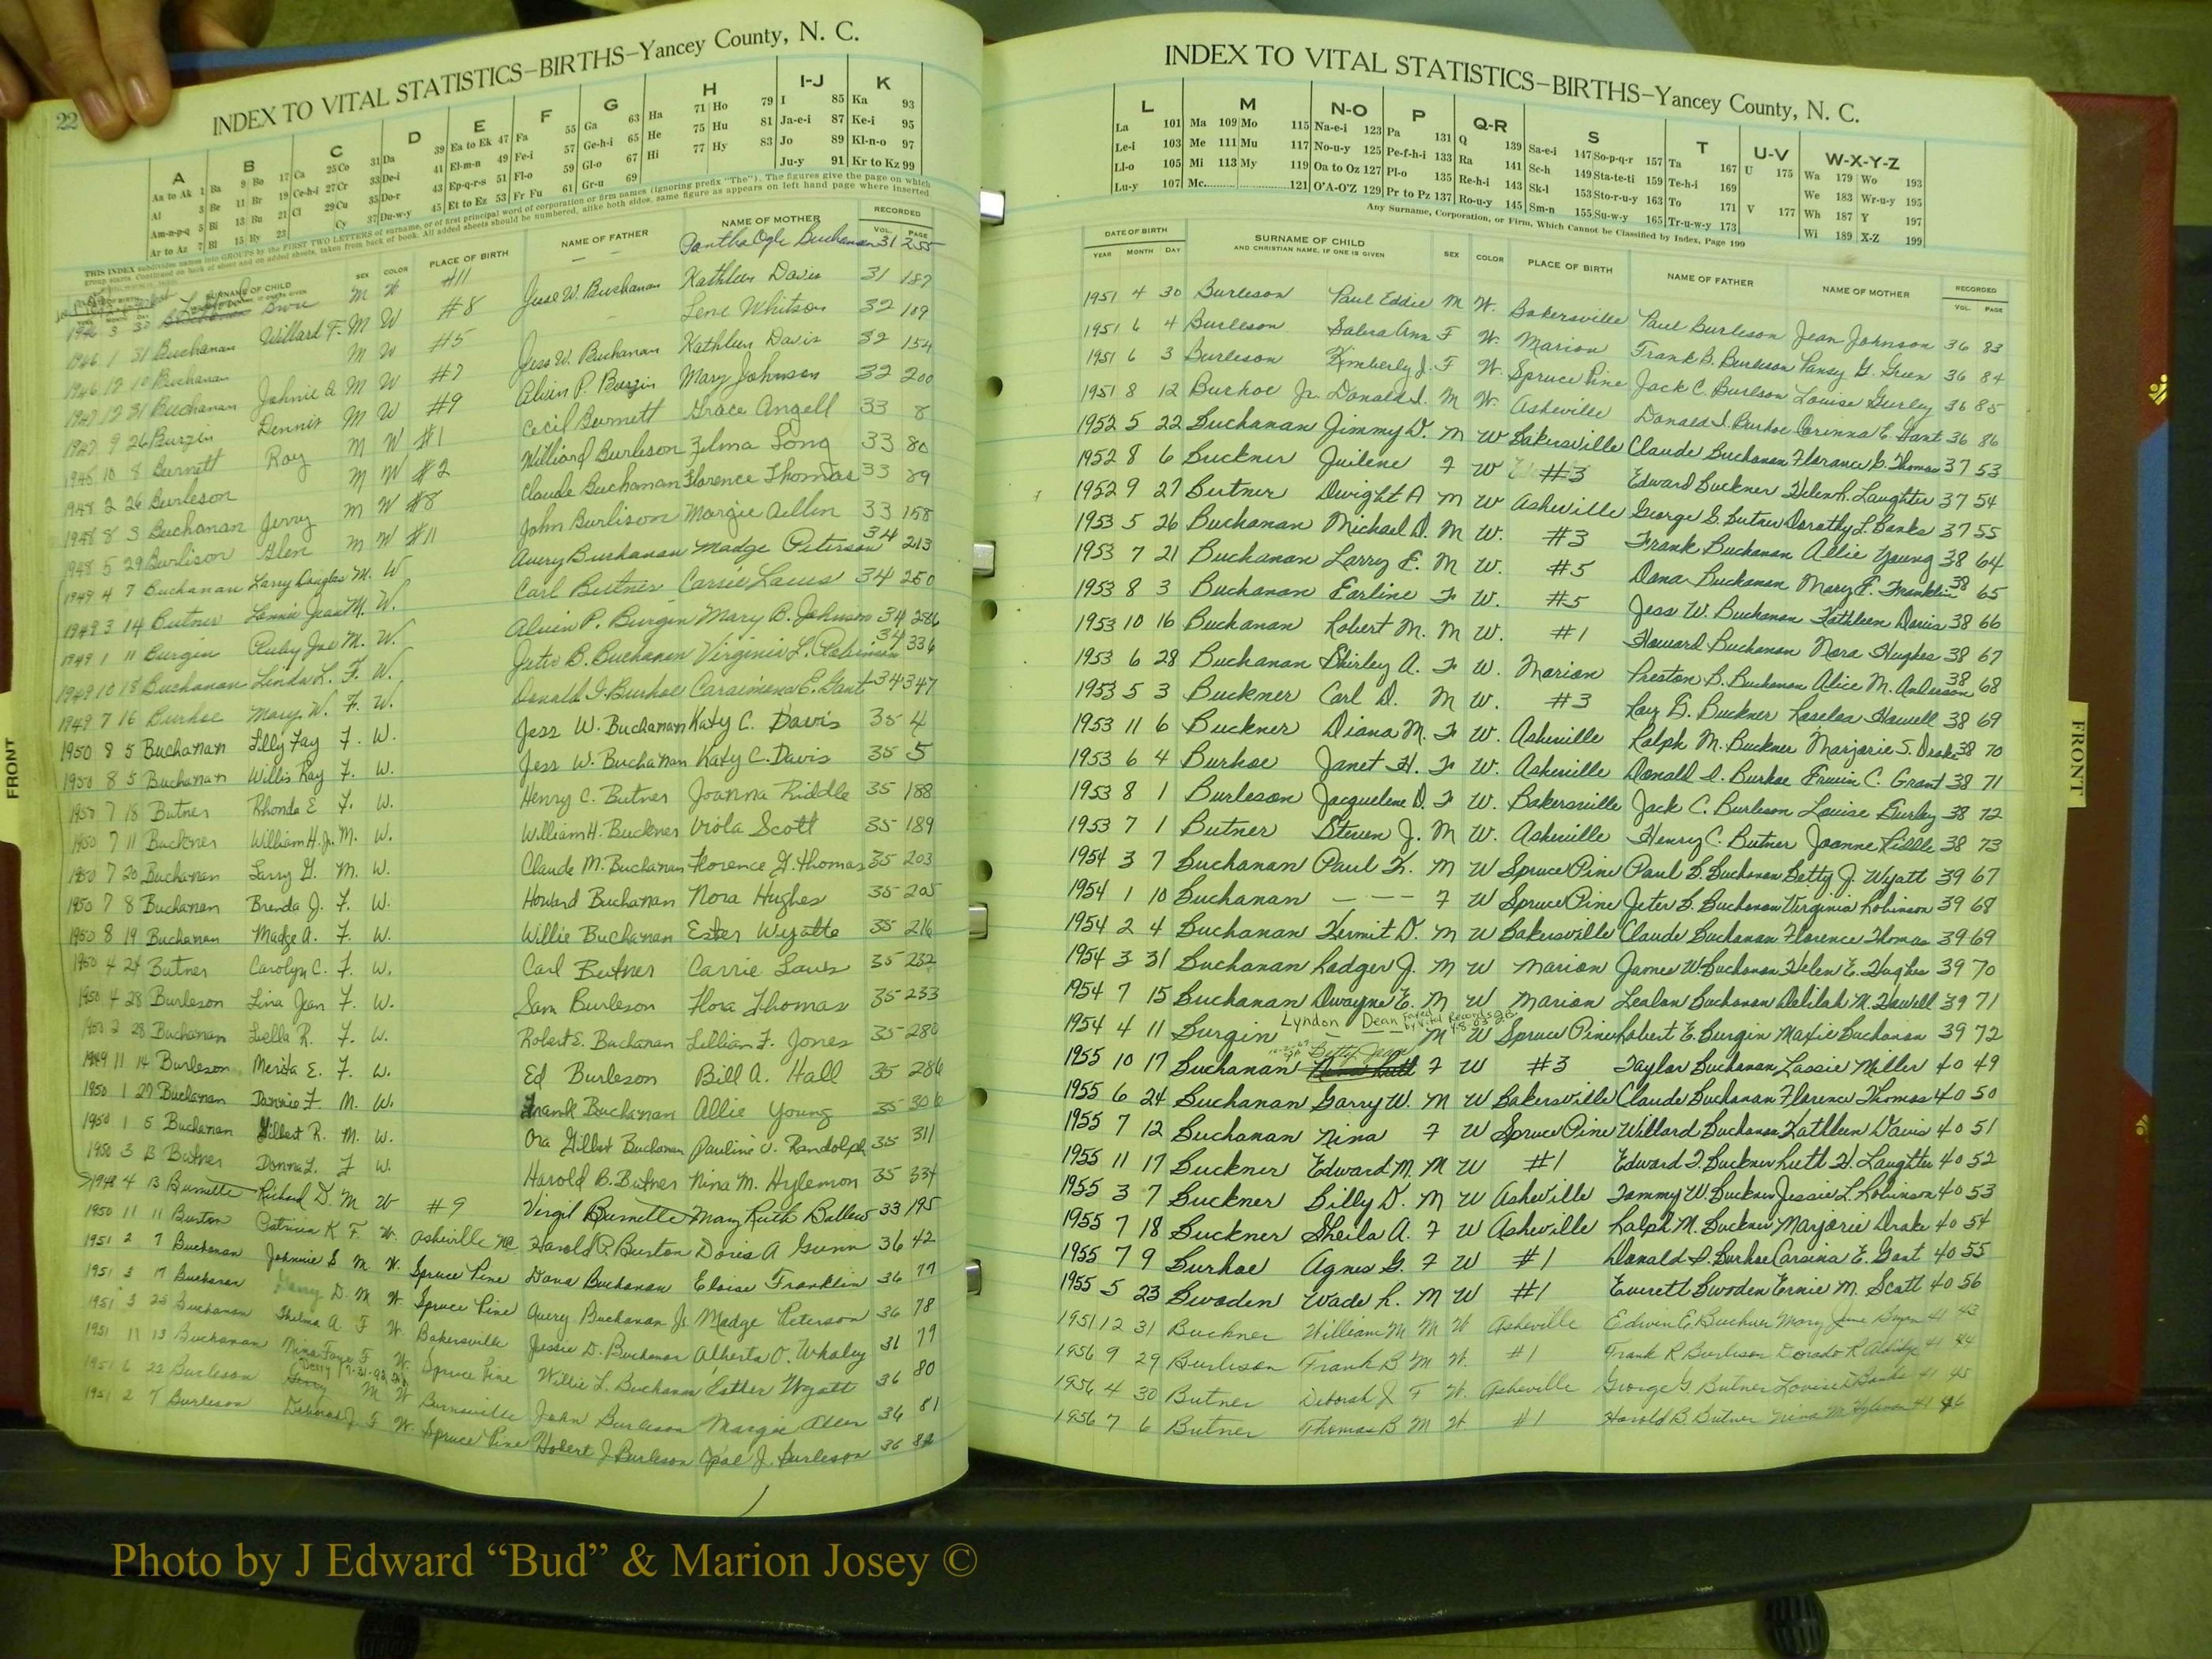 22
INDEX TO VITAL STATISTICS–BIRTHS–Yancey County, N. C.
A B C D E F G H I-J K
Aa to Ak 1 Ba 9 Bo 17 Ca 25 Co 31 Da 39 Ea to Ek 47 Fa 55 Ga 63 Ha 71 Ho 79 I 85 Ka 93
Al 3 Be 11 Br 19 Ce-h-i 27 Cr 33 De-i 41 El-m-n 49 Fe-i 57 Ge-h-i 65 He 75 Hu 81 Ja-e-i 87 Ke-i 95
Am-n-p-q 5 Bi 13 Bu 21 Cl 29 Cu 35 Do-r 43 Ep-q-r-s 51 Fl-o 59 Gl-o 67 Hi 77 Hy 83 Jo 89 Kl-n-o 97
Ar to Az 7 Bl 15 By 23 Cy 37 Du-w-y 45 Et to Ez 53 Fr Fu 61 Gr-u 69 Ju-y 91 Kr to Kz 99
THIS INDEX subdivides names into GROUPS by the FIRST TWO LETTERS of surname, or of first principal word of corporation or firm names (ignoring prefix "The"). The figures give the page on which
group starts. Continued on back of sheet and on added sheets, taken from back of book. All added sheets should be numbered, alike both sides, same figure as appears on left hand page where inserted.
SURNAME OF CHILD SEX COLOR PLACE OF BIRTH NAME OF FATHER NAME OF MOTHER RECORDED VOL. PAGE
M W #11 — — Buchanan 31 255
1946 1 31 Buchanan Willard F. M W #8 Jesse W. Buchanan Kathleen Davis 31 187
1946 12 10 Buchanan M W #5 Lene Whitson 32 109
1947 12 31 Buchanan Johnie A M W #7 Jess W. Buchanan Kathleen Davis 32 154
1947 9 26 Burgin Dennis M W #9 Alvin P. Burgin Mary Johnson 32 200
10 8 Burnett Roy M W #1 Cecil Burnett Grace Angell 33 8
1948 2 26 Burleson M W #2 Williard Burleson Zelma Long 33 80
1948 8 3 Buchanan Jerry M W #8 Claude Buchanan Florence Thomas 33 89
1948 5 29 Burlison Glen M W #11 John Burlison Margie Allen 33 158
1949 4 7 Buchanan Larry Douglas M. W Avery Buchanan Madge Peterson 34 213
1949 3 14 Butner Jean M. W. Carl Butner Carrie Laws 34 250
1949 1 11 Burgin Ruby Joe M. W. Alvin P. Burgin Mary B. Johnson 34 286
1949 10 18 Buchanan Linda L. F. W. Jeter B. Buchanan Virginia L. Robinson 34 336
1949 7 16 Burhoe Mary W. F. W. Donald I. Burhoe E. Gant 34 347
1950 8 5 Buchanan Lilly Fay F. W. Jess W. Buchanan Katy C. Davis 35 4
1950 8 5 Buchanan Willis Ray F. W. Jess W. Buchanan Katy C. Davis 35 5
1950 7 18 Butner Rhonda E F. W. Henry C. Butner Joanna Riddle 35 188
1950 7 11 Buckner William H. Jr. M. W. William H. Buckner Viola Scott 35 189
1950 7 20 Buchanan Larry G. M. W. Claude M. Buchanan Florence G. Thomas 35 203
1950 7 8 Buchanan Brenda J. F. W. Howard Buchanan Nora Hughes 35 205
1950 8 19 Buchanan Madge A. F. W. Willie Buchanan Ester Wyatte 35 216
1950 4 24 Butner Carolyn C. F. W. Carl Butner Carrie Laws 35 232
1950 4 28 Burleson Lina Jean F. W. Sam Burleson Flora Thomas 35 233
1950 2 28 Buchanan Luella R. F. W. Robert E. Buchanan Lillian F. Jones 35 280
1949 11 14 Burleson Merita E. F. W. Ed Burleson Bill A. Hall 35 286
1950 1 27 Buchanan Dannie F. M. W. Frank Buchanan Allie Young 35 306
1950 1 5 Buchanan Gilbert R. M. W. Ora Gilbert Buchanan Pauline V. Randolph 35 311
1950 3 13 Butner Donna L. F W. Harold B. Butner Nina M. Hylemon 35 334
1948 4 13 Burnette Richard D. M W #9 Virgil Burnette Mary Ruth Ballew 33 195
1950 11 11 Burton Patricia K F. W. Asheville NC Harold P. Burton Doris A Gunn 36 42
1951 2 7 Buchanan Johnnie S M W. Spruce Pine Dana Buchanan Eloise Franklin 36 77
1951 3 17 Buchanan D. M W. Spruce Pine Avery Buchanan Jr Madge Peterson 36 78
1951 3 25 Buchanan Thelma A F W. Bakersville Jessie D. Buchanan Alberta O. Whaley 36 79
1951 11 13 Buchanan Nina Faye F W. Spruce Pine Willie L. Buchanan Esther Wyatt 36 80
1951 6 22 Burleson M W Burnsville John Burleson Margie Allen 36 81
1951 2 7 Burleson Deborah J. F W. Spruce Pine Hobert J Burleson Opal J. Burleson 36 82
INDEX TO VITAL STATISTICS–BIRTHS–Yancey County, N. C.
L M N-O P Q-R S T U-V W-X-Y-Z
La 101 Ma 109 Mo 115 Na-e-i 123 Pa 131 Q 139 Sa-e-i 147 So-p-q-r 157 Ta 167 U 175 Wa 179 Wo 193
Le-i 103 Me 111 Mu 117 No-u-y 125 Pe-f-h-i 133 Ra 141 Sc-h 149 Sta-te-ti 159 Te-h-i 169 We 183 Wr-u-y 195
Ll-o 105 Mi 113 My 119 Oa to Oz 127 Pl-o 135 Re-h-i 143 Sk-l 153 Sto-r-u-y 163 To 171 V 177 Wh 187 Y 197
Lu-y 107 Mc 121 O'A-O'Z 129 Pr to Pz 137 Ro-u-y 145 Sm-n 155 Su-w-y 165 Tr-u-w-y 173 Wi 189 X-Z 199
Any Surname, Corporation, or Firm, Which Cannot be Classified by Index, Page 199
DATE OF BIRTH YEAR MONTH DAY SURNAME OF CHILD AND CHRISTIAN NAME, IF ONE IS GIVEN SEX COLOR PLACE OF BIRTH NAME OF FATHER NAME OF MOTHER RECORDED VOL. PAGE
1951 4 30 Burleson Paul Eddie M W. Bakersville Paul Burleson Jean Johnson 36 83
1951 6 4 Burleson Ann F W. Marion Frank B. Burleson Pansy G. Green 36 84
1951 6 3 Burleson Kimberly J. F W. Spruce Pine Jack C. Burleson Louise Gurley 36 85
1951 8 12 Burhoe Jr. Donald I. M W. Asheville Donald I. Burhoe E. Gant 36 86
1952 5 22 Buchanan Jimmy D. M W Bakersville Claude Buchanan Florance G. Thomas 37 53
1952 8 6 Buckner Juilene F W #3 Edward Buckner Helen R. Laughter 37 54
1952 9 27 Butner Dwight A M W Asheville George G. Butner Dorothy L. Banks 37 55
1953 5 26 Buchanan Michael D. M W. #3 Frank Buchanan Allie Young 38 64
1953 7 21 Buchanan Larry E. M W. #5 Dana Buchanan Mary E. Franklin 38 65
1953 8 3 Buchanan Earline F W. #5 Jess W. Buchanan Kathleen Davis 38 66
1953 10 16 Buchanan Robert M. M W. #1 Howard Buchanan Nora Hughes 38 67
1953 6 28 Buchanan Shirley A. F W. Marion Preston B. Buchanan Alice M. Anderson 38 68
1953 5 3 Buckner Carl D. M W. #3 Roy G. Buckner Roselea Howell 38 69
1953 11 6 Buckner Diana M. F W. Asheville Ralph M. Buckner Marjorie S. Drake 38 70
1953 6 4 Burhoe Janet H. F W. Asheville Donald I. Burhoe C. Grant 38 71
1953 8 1 Burleson Jacqueline D. F W. Bakersville Jack C. Burleson Louise Gurley 38 72
1953 7 1 Butner Steven J. M W. Asheville Henry C. Butner Joanne Riddle 38 73
1954 3 7 Buchanan Paul K. M W Spruce Pine Paul B. Buchanan Betty J. Wyatt 39 67
1954 1 10 Buchanan — — — F W Spruce Pine Jeter B. Buchanan Virginia Robinson 39 68
1954 2 4 Buchanan Kermit D. M W Bakersville Claude Buchanan Florence Thomas 39 69
1954 3 31 Buchanan Rodger J. M W Marion James W. Buchanan Helen E. Hughes 39 70
1954 7 15 Buchanan Dwayne E. M W Marion Lealon Buchanan Delilah M. Howell 39 71
Lyndon Dean by Vital Records
1954 4 11 Burgin M W Spruce Pine Robert E. Burgin Maxie Buchanan 39 72
Betty Jean
1955 10 17 Buchanan F W #3 Taylor Buchanan Lassie Miller 40 49
1955 6 24 Buchanan Garry W. M W Bakersville Claude Buchanan Florence Thomas 40 50
1955 7 12 Buchanan Nina F W Spruce Pine Willard Buchanan Kathleen Davis 40 51
1955 11 17 Buckner Edward M. M W #1 Edward F. Buckner Ruth H. Laughter 40 52
1955 3 7 Buckner Billy D. M W Asheville Tommy W. Buckner Jessie L. Robinson 40 53
1955 7 18 Buckner Sheila A. F W Asheville Ralph M. Buckner Marjorie Drake 40 54
1955 7 9 Burhoe Agnes G. F W #1 Donald I. Burhoe E. Gant 40 55
1955 5 23 Bwoden Wade R. M W #1 Everett Bwoden Ernie M. Scott 40 56
1951 12 31 Buckner William M M W Asheville Edwin E. Buckner Mary June 41 43
1956 9 29 Burleson Frank B M W. #1 Frank R Burleson 41 44
1956 4 30 Butner Deborah J F W. Asheville George G. Butner Banks 41 45
1956 7 6 Butner Thomas B M W #1 Harold B. Butner Nina M Hylemon 41 46
FRONT
FRONT
Photo by J Edward “Bud” & Marion Josey ©